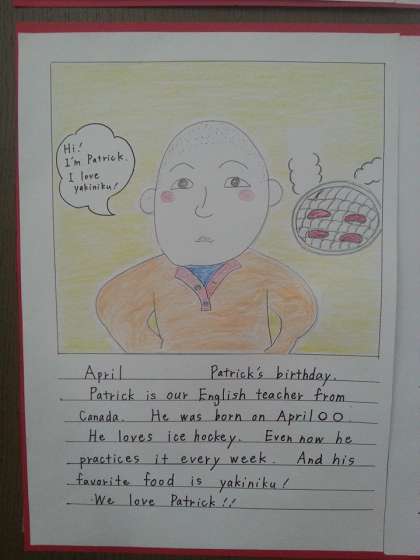 Hi!
I'm Patrick.
I love
yakiniku!
April Patrick's birthday.
Patrick is our English teacher from
Canada. He was born on April○○.
He loves ice hockey. Even now he
practices it every week. And his
favorite food is yakiniku!
We love Patrick!!